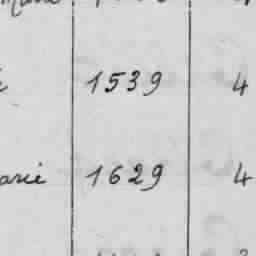 1539 4
arie 1629 4